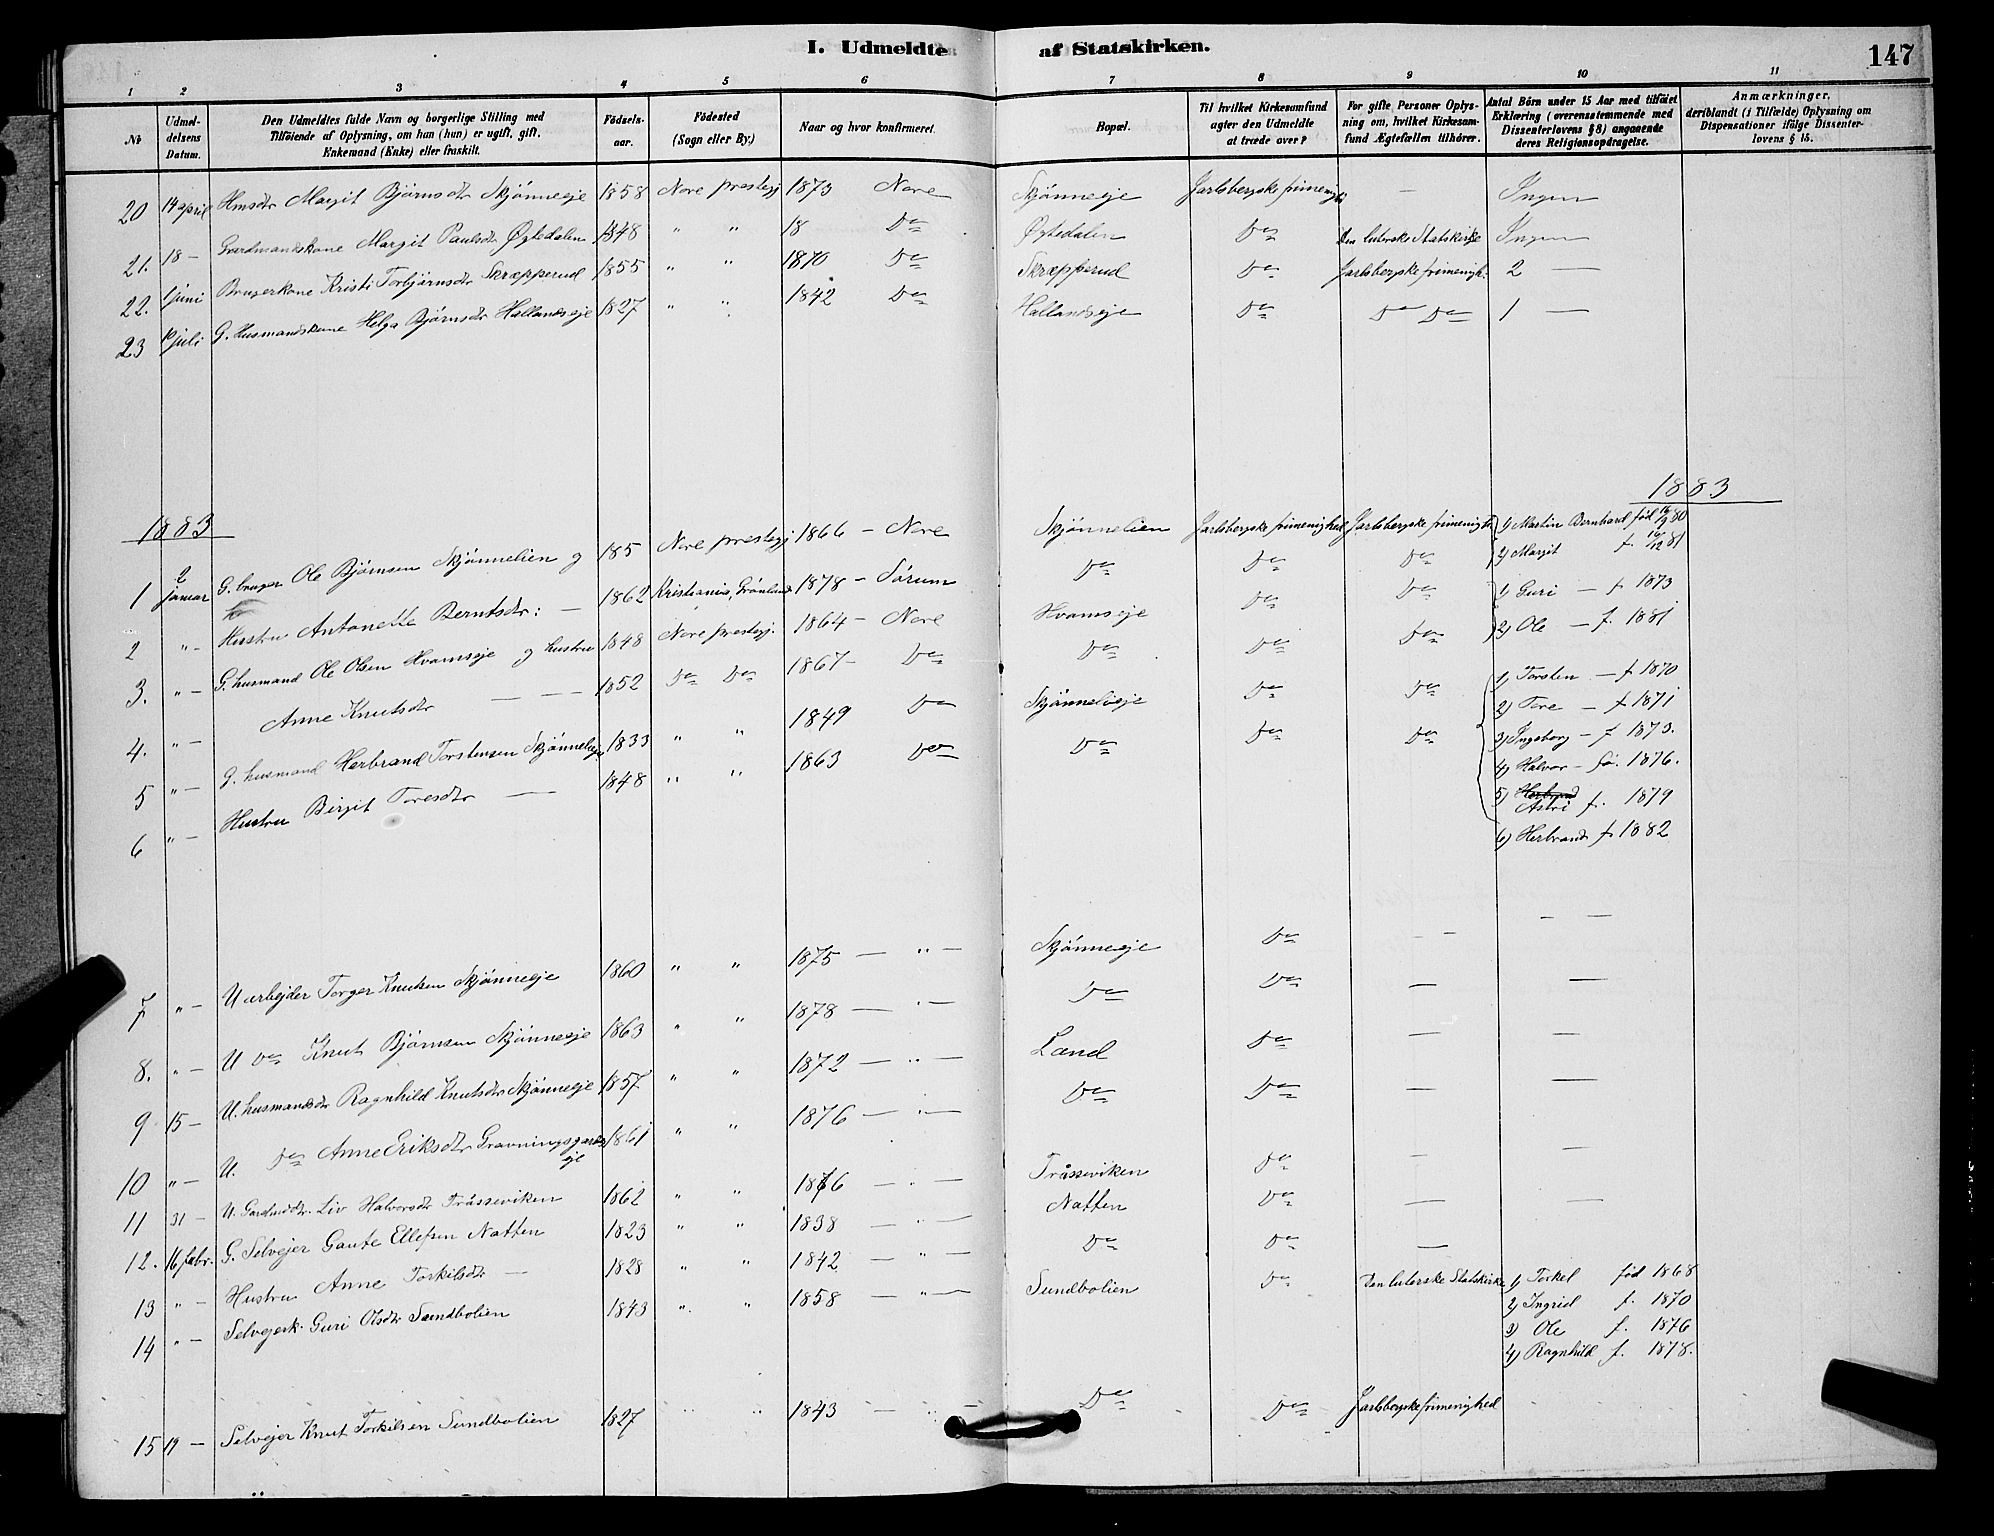 I. Udmeldte af Statskirken. 147
1 2 3 4 5 6 7 8 9 10 11
№ Udmeldelsens Datum. Den Udmeldtes fulde Navn og borgerlige Stilling med Tilføiende af Oplysning, om han (hun) er ugift, gift, Enkemand (Enke) eller fraskilt. Fødselsaar. Fødested (Sogn eller By.) Naar og hvor konfirmeret. Bopæl. Til hvilket Kirkesamfund agter den Udmeldte at træde over? For gifte Personer Oplysning om, hvilket Kirkesamfund Ægtefællen tilhører. Antal Børn under 15 Aar med tilføiet Erklæring (overensstemmende med Dissenterlovens § 8) angaaende deres Religionsopdragelse. Anmærkninger, deriblandt (i Tilfælde) Oplysning om Dispensationer ifølge Dissenterlovens § 15.
20 14 april Hmsdtr Margit Bjørnsdtr Skjønneeje 1858 Nore prestegj 1873 Nore Skjønneeje Jarlsbergske frimenighed — Ingen
21. 18 — Gardmandskone Margit Paulsdtr Øgtedalen 1848 " " 18 Do Øgtedalen Do Den luterske Statskirke Ingen
22. 1 juni Brugerkone Kristi Torbjørnsdtr Skræpperud 1855 " " 1870 Do Skræpperud Do Jarlsbergske frimenigh. 2 —
23 juli G. Husmandskone Helga Bjørnsdtr Hallandseje 1827 " " 1842 Do Hallandseje Do Do Do 1 —
1883 1883
1 2 januar G. bruger Ole Bjørnsen Skjønnelien og 185 Nore prestegj 1866 — Nore Skjønnelien Jarlsbergske frimenighed Jarlsbergske frimenigh. 1) Martin Bernhard fød 16/9 80
2) Margit f. 16/12 81
2 " — Hustru Antonette Berntsdtr: — 1862 Kristiania, Grønland 1878 — Sørum Do Do Do
3. " — G. husmand Ole Olsen Hvamseje og hustru 1848 Nore prestegj. 1864 — Nore Hvamseje Do Do 1) Guri — f 1873
2) Ole — f. 1881
4. " — Anne Knutsdtr — — — 1852 Do Do 1867 — Do Do Do Do
5 " — G. husmand Herbrand Torstensen Skjønneli 1833 " " 1849 Do Skjønnelieje Do Do 1) Torsten — f 1870
2) Tore — f 1871
3) Ingeborg — f 1873.
6 " — Hustru Birgit Toresdtr — 1848 " " 1863 Do Do Do Do 4) Halvor — fø. 1876.
5) Herbrand
Astri f. 1879
6) Herbrand f. 1882
7 " — U arbejder Torger Knutsen Skjønneeje 1860 " " 1875 — " — Skjønneeje Do — — — —
8. " — U Do Knut Bjørnsen Skjønneeje 1863 " " 1878 — " — Do Do — —
9 15 — U. husmandsdtr Ragnhild Knutsdtr Skjønneeje 1857 " " 1872 — " — Land Do — —
10 " — U. Do Anne Eriksdtr Gravningsgards
eje 1861 " " 1876 — " — Do Do — —
11 31 — U. Gardmdtr. Liv Halvorsdtr Tråsseviken 1862 " " 1876 — " — Tråsseviken Do — —
12. 16 febr. G. Selvejer Gaute Ellefsen Natten 1823 " " 1838 — " — Natten Do — —
13 " — Hustru Anne Torkilsdtr — 1828 " " 1842 — " — Do Do —
14 " — Selvejerk. Guri Olsdtr Sundbolien 1843 " " 1858 — " — Sundbolien Do Den luterske Statskirke 1) Torkel fød 1868
2) Ingrid f. 1870
3) Ole f. 1876
4) Ragnhild f. 1878.
15 19 — Selvejer Knut Torkilsen Sundbolien 1827 " " 1843 — " — Do Do Jarlsbergske frimenighed